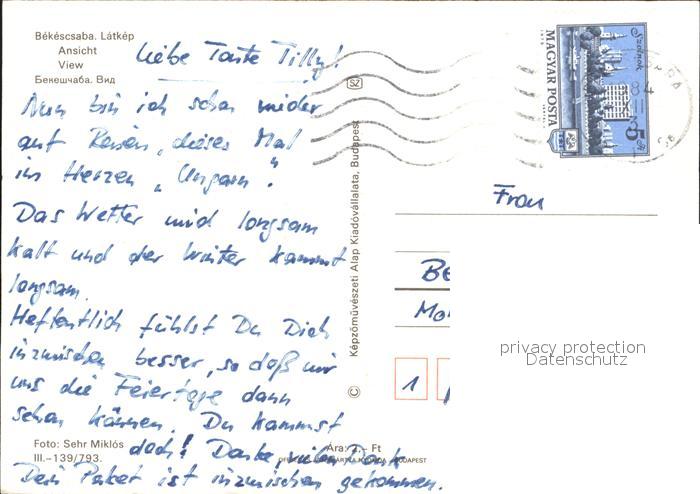 Békéscsaba. Látkép
Ansicht
View
Бекешчаба. Вид
Liebe Tante Tilly!
Nun bin ich schon wieder
auf Reisen, dieses Mal
im Herzen „Ungarn".
Das Wetter wird langsam
kalt und der Winter kommt
langsam.
Hoffentlich fühlst Du Dich
inzwischen besser, so daß wir
uns die Feiertage dann
sehen können. Du kommst
doch! Danke, vielen Dank
Dein Paket ist inzwischen gekommen.
Foto: Sehr Miklós
III.–139/793.
Ára: 2,– Ft
BUDAPEST
© Képzőművészeti Alap Kiadóvállalata, Budapest
SZ
MAGYAR POSTA
Szolnok
5 Ft
84
Frau
Be
Mo
1
privacy protection
Datenschutz